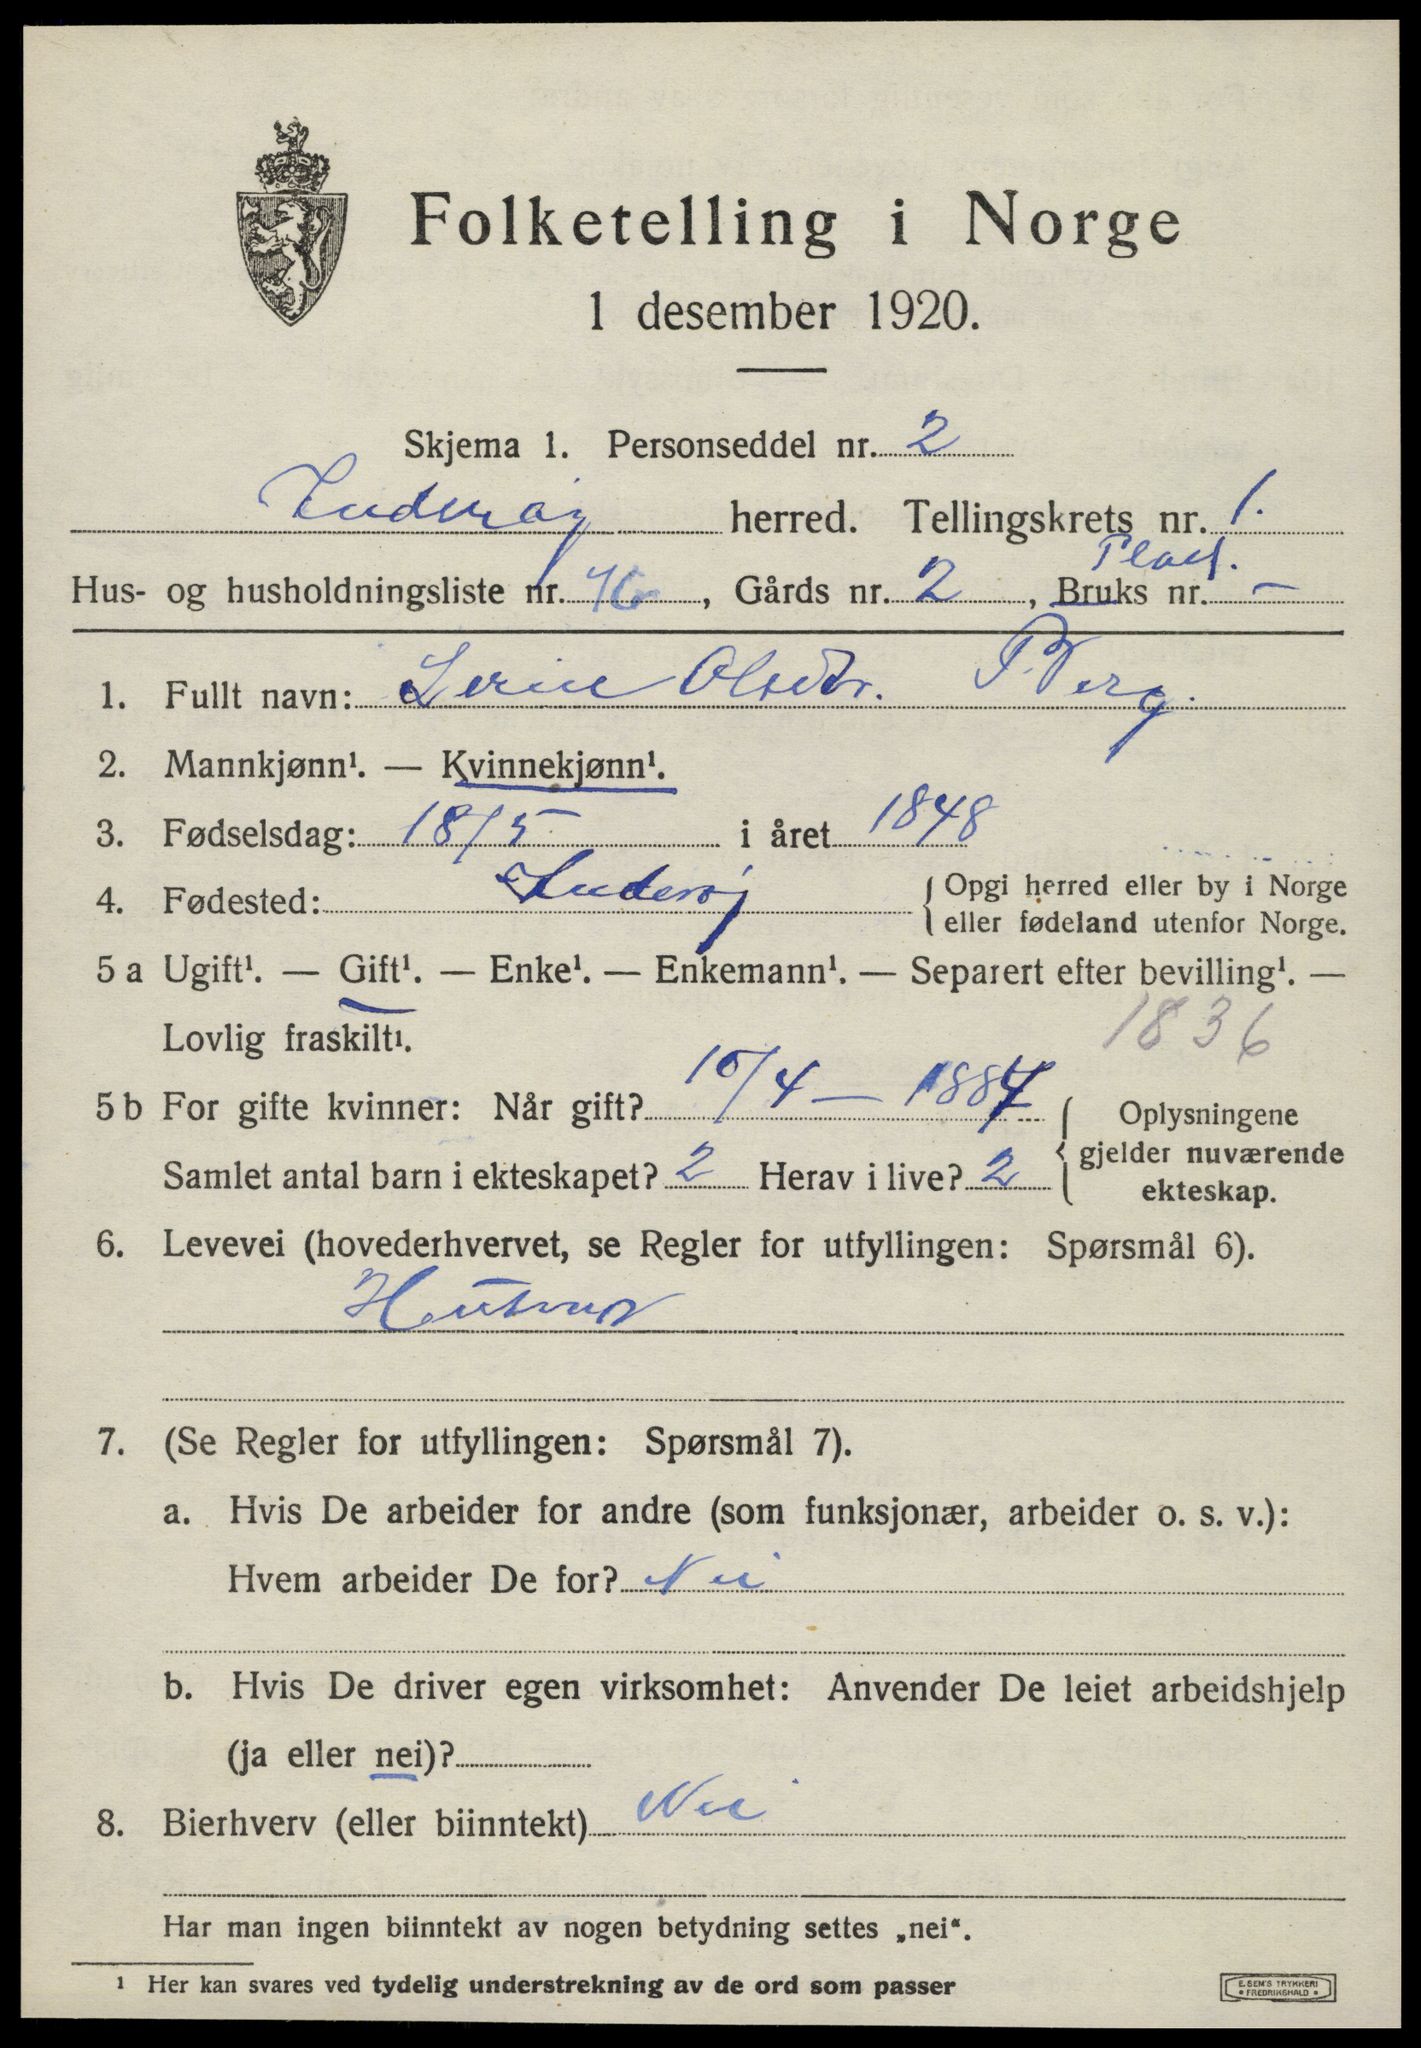 Folketelling i Norge
1 desember 1920.
Skjema 1. Personseddel nr. 2
Inderøy herred. Tellingskrets nr. 1.
Plads.
Hus- og husholdningsliste nr. 46, Gårds nr. 2, Bruks nr. —
1. Fullt navn: Serine Olsdtr. Berg.
2. Mannkjønn¹. — Kvinnekjønn¹.
3. Fødselsdag: 18/5 i året 1848
4. Fødested: Inderøy { Opgi herred eller by i Norge
eller fødeland utenfor Norge.
5 a Ugift¹. — Gift¹. — Enke¹. — Enkemann¹. — Separert efter bevilling¹. —
Lovlig fraskilt¹.
1836
5 b For gifte kvinner: Når gift? 10/4 — 1887 { Oplysningene
gjelder nuværende
ekteskap.
Samlet antal barn i ekteskapet? 2 Herav i live? 2
6. Levevei (hovederhvervet, se Regler for utfyllingen: Spørsmål 6).
Hustru
7. (Se Regler for utfyllingen: Spørsmål 7).
a. Hvis De arbeider for andre (som funksjonær, arbeider o. s. v.):
Hvem arbeider De for? Nei
b. Hvis De driver egen virksomhet: Anvender De leiet arbeidshjelp
(ja eller nei)?
8. Bierhverv (eller biinntekt) Nei
Har man ingen biinntekt av nogen betydning settes „nei“.
¹ Her kan svares ved tydelig understrekning av de ord som passer
E. SEM'S TRYKKERI
FREDRIKSHALD